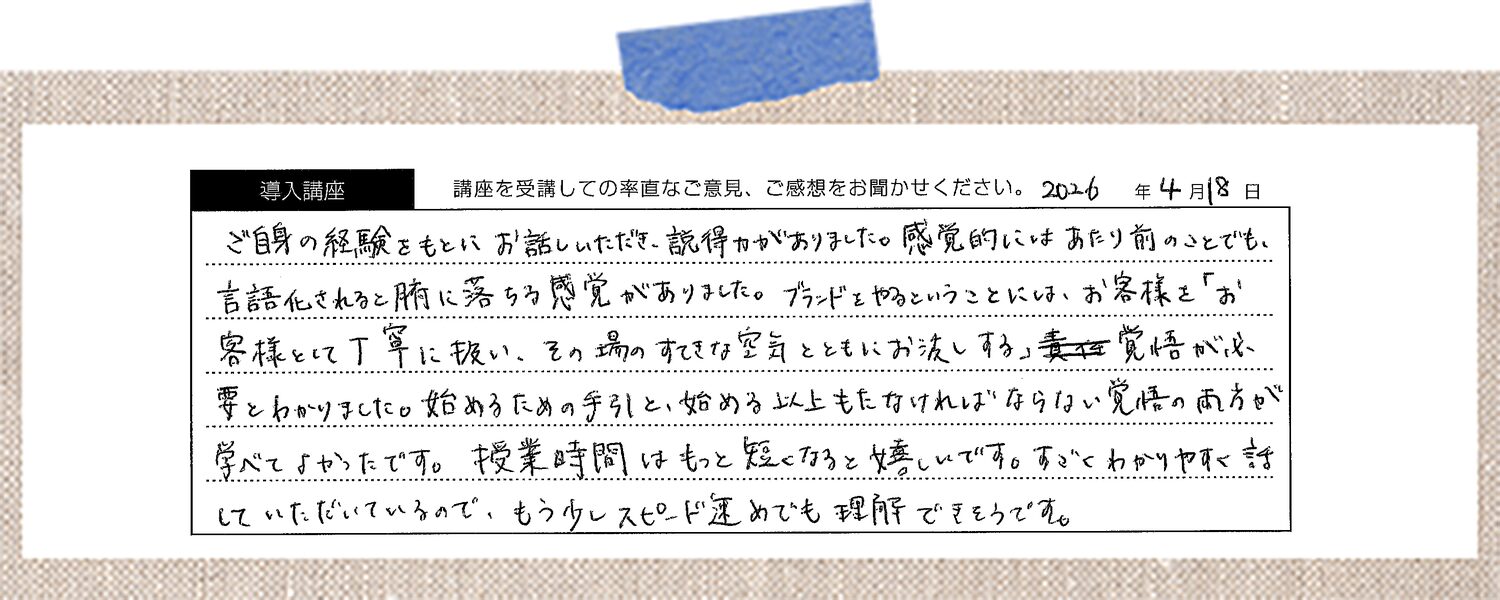 導入講座
講座を受講しての率直なご意見、ご感想をお聞かせください。 2026 年 4 月 18 日
ご自身の経験をもとにお話しいただき、説得力がありました。感覚的にはあたり前のことでも、
言語化されると腑に落ちる感覚がありました。ブランドをやるということには、お客様を「お
客様として丁寧に扱い、その場のすてきな空気とともにお渡しする」覚悟が必
要とわかりました。始めるための手引と、始める以上もたなければならない覚悟の両方が
学べてよかったです。授業時間はもっと短くなると嬉しいです。すごくわかりやすく話
していただいているので、もう少しスピード速めでも理解できそうです。